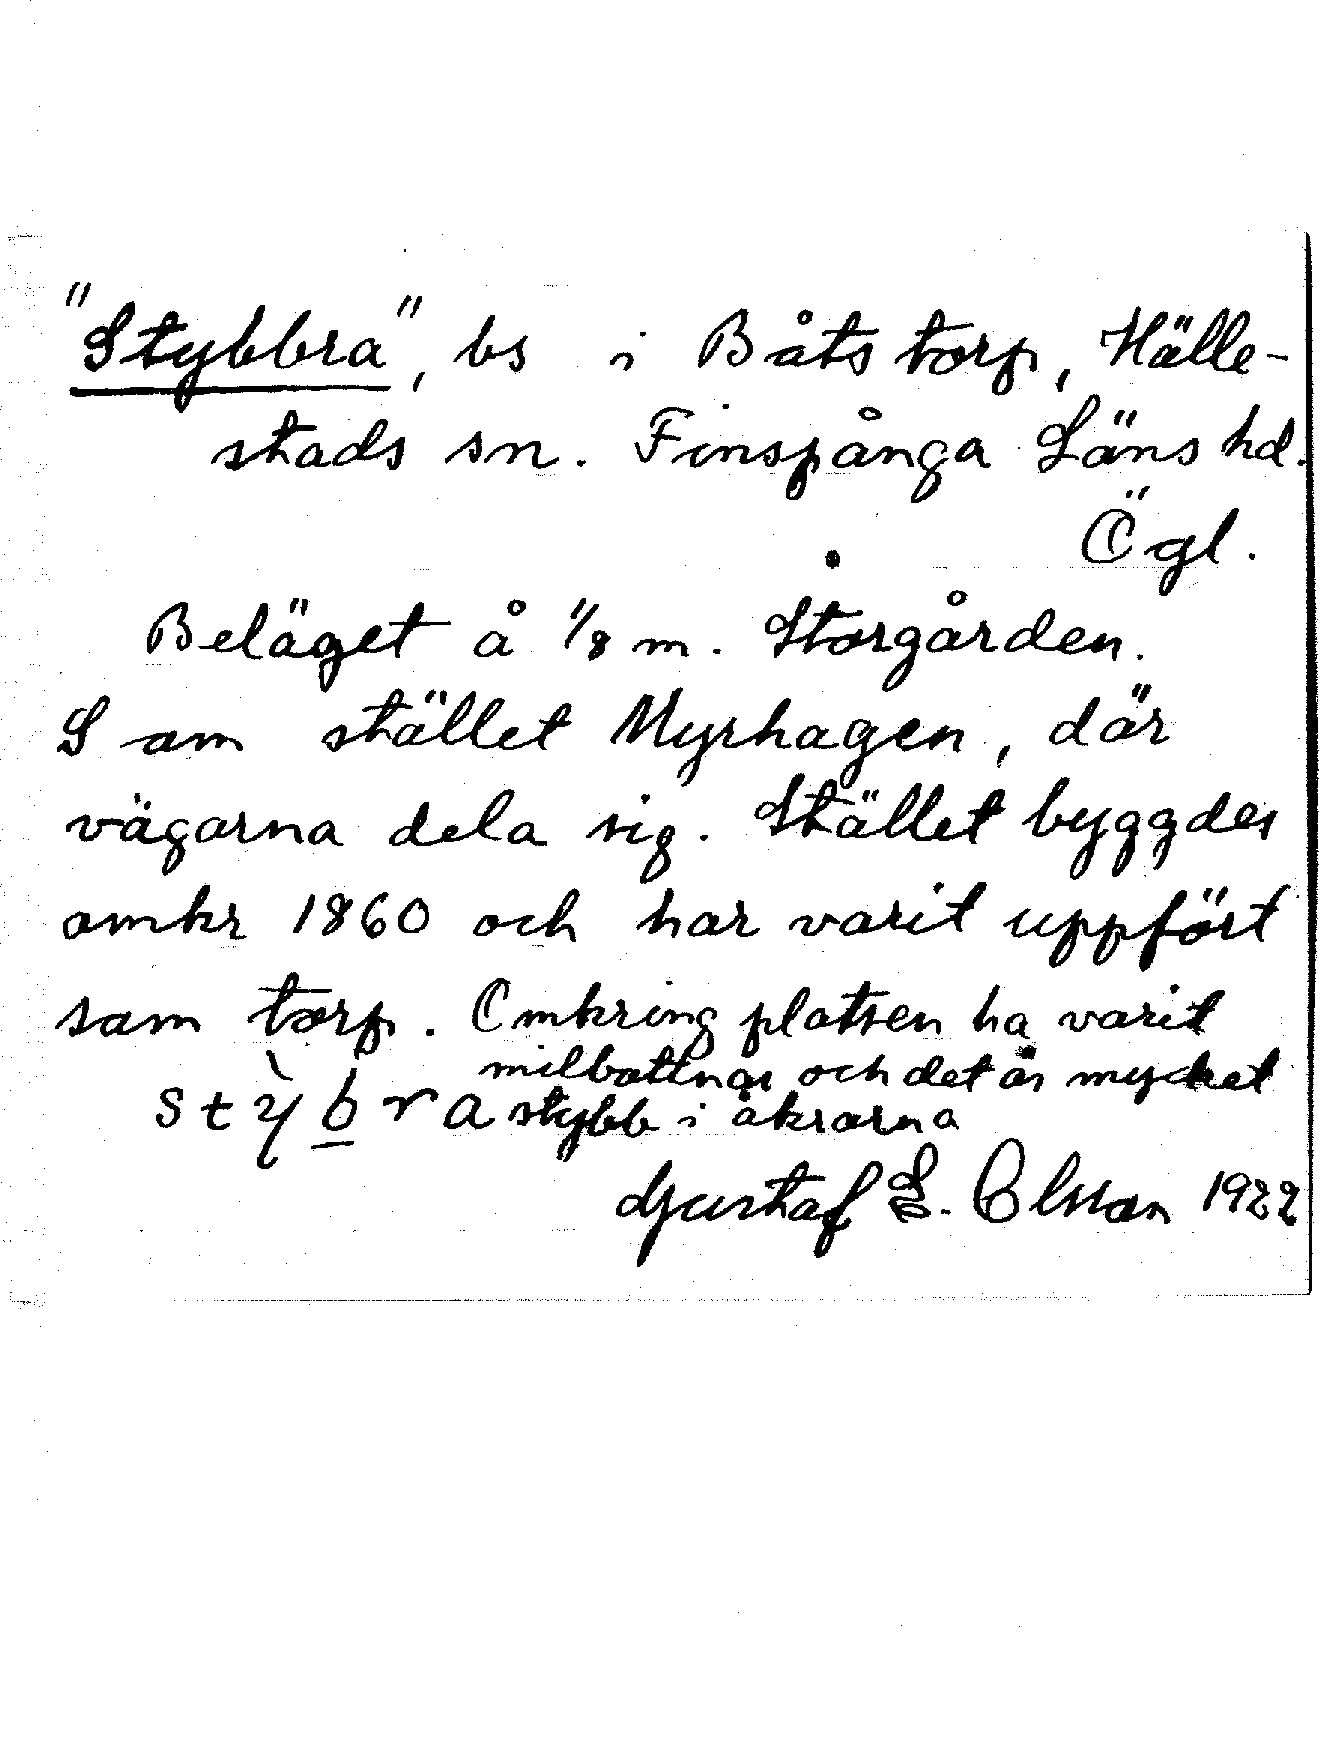 "Stybbra", bs i Båtstorp, Hälle-
stads sn. Finspånga Läns hd.
Ögl.
Beläget å 1/8 m. Storgården.
S om stället Myrhagen, där
vägarna dela sig. Stället byggdes
omkr 1860 och har varit uppfört
som torp. Omkring platsen ha varit
milbottnar och det är mycket
stybb i åkrarna
st&#768;ỳb̲ra
Gustaf E. Olsson 1922